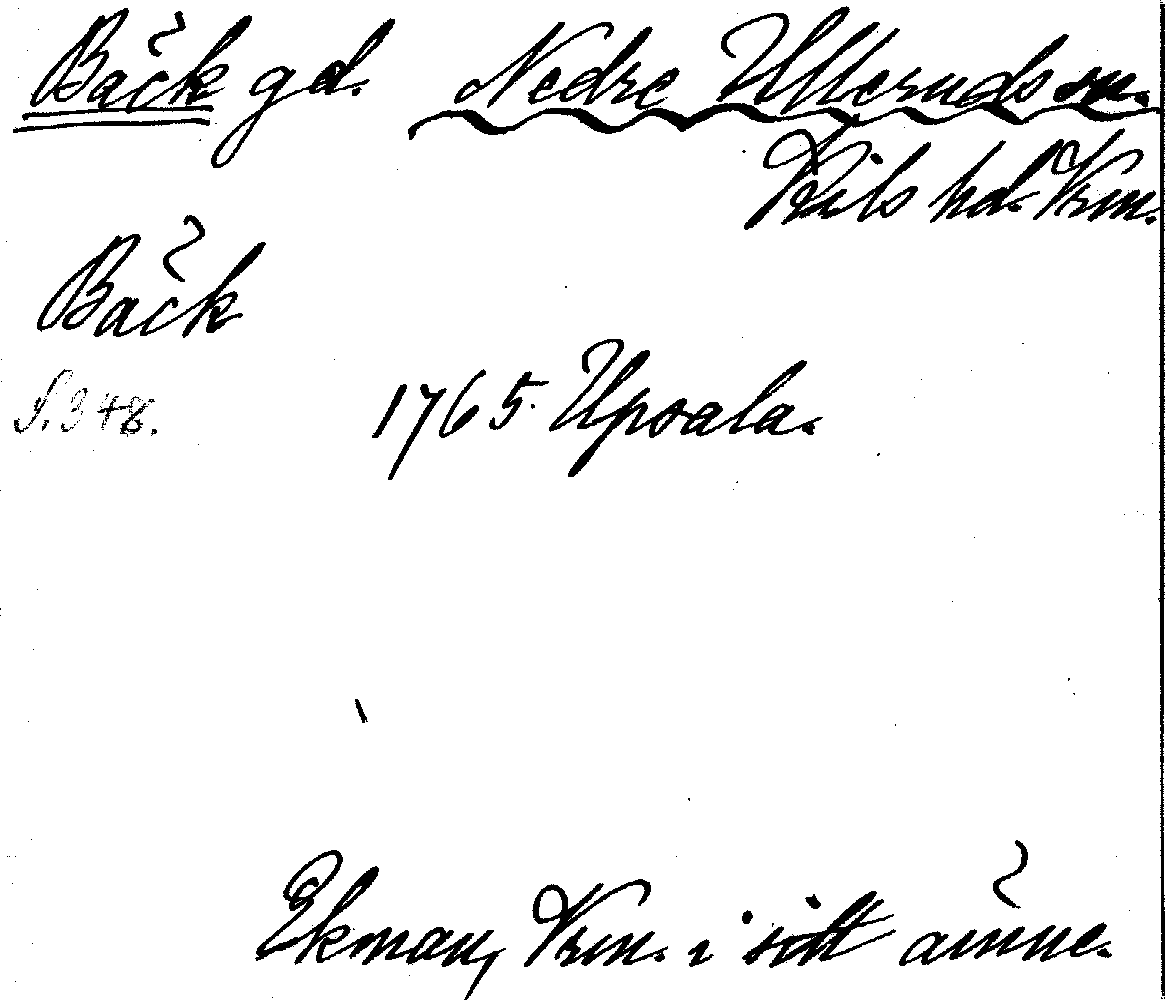 Bäck gd. Nedre Ulleruds sn.
Kils hd. Vrm.
Bäck
S. 348. 1765 Upsala.
Ekman, Vrm. i sitt ämne.